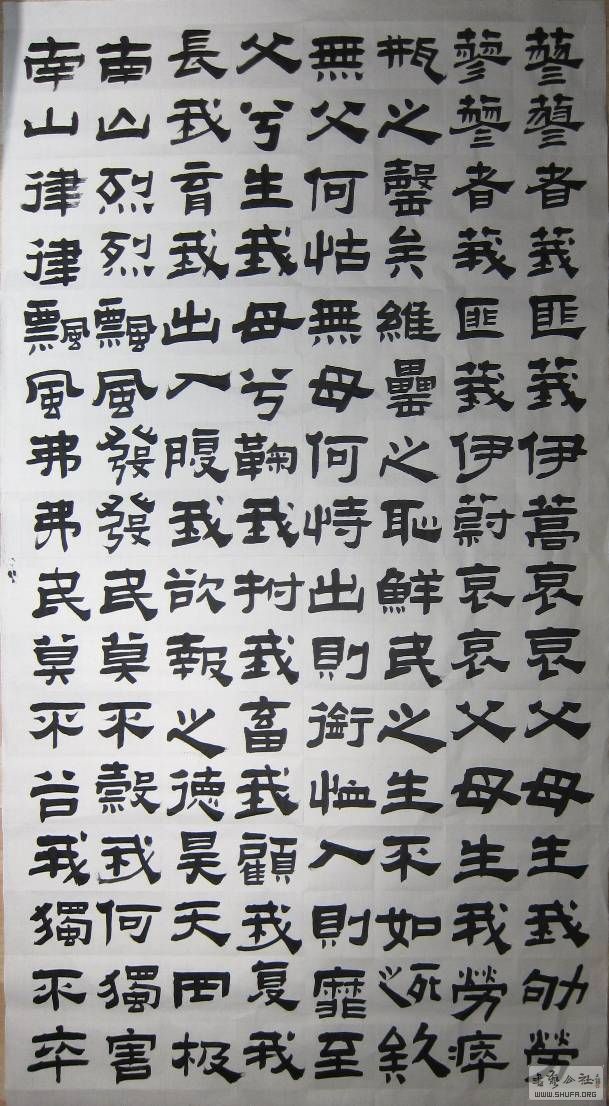 蓼蓼者莪匪莪伊蒿哀哀父母生我劬勞
蓼蓼者莪匪莪伊蔚哀哀父母生我勞瘁
瓶之罄矣維罍之恥鮮民之生不如死之久矣
無父何怙無母何恃出則銜恤入則靡至
父兮生我母兮鞠我拊我畜我顧我复我
長我育我出入腹我欲報之德昊天罔极
南山烈烈飄風發發民莫不穀我何獨害
南山律律飄風弗弗民莫不谷我獨不卒
书艺公社
WWW.SHUFA.ORG